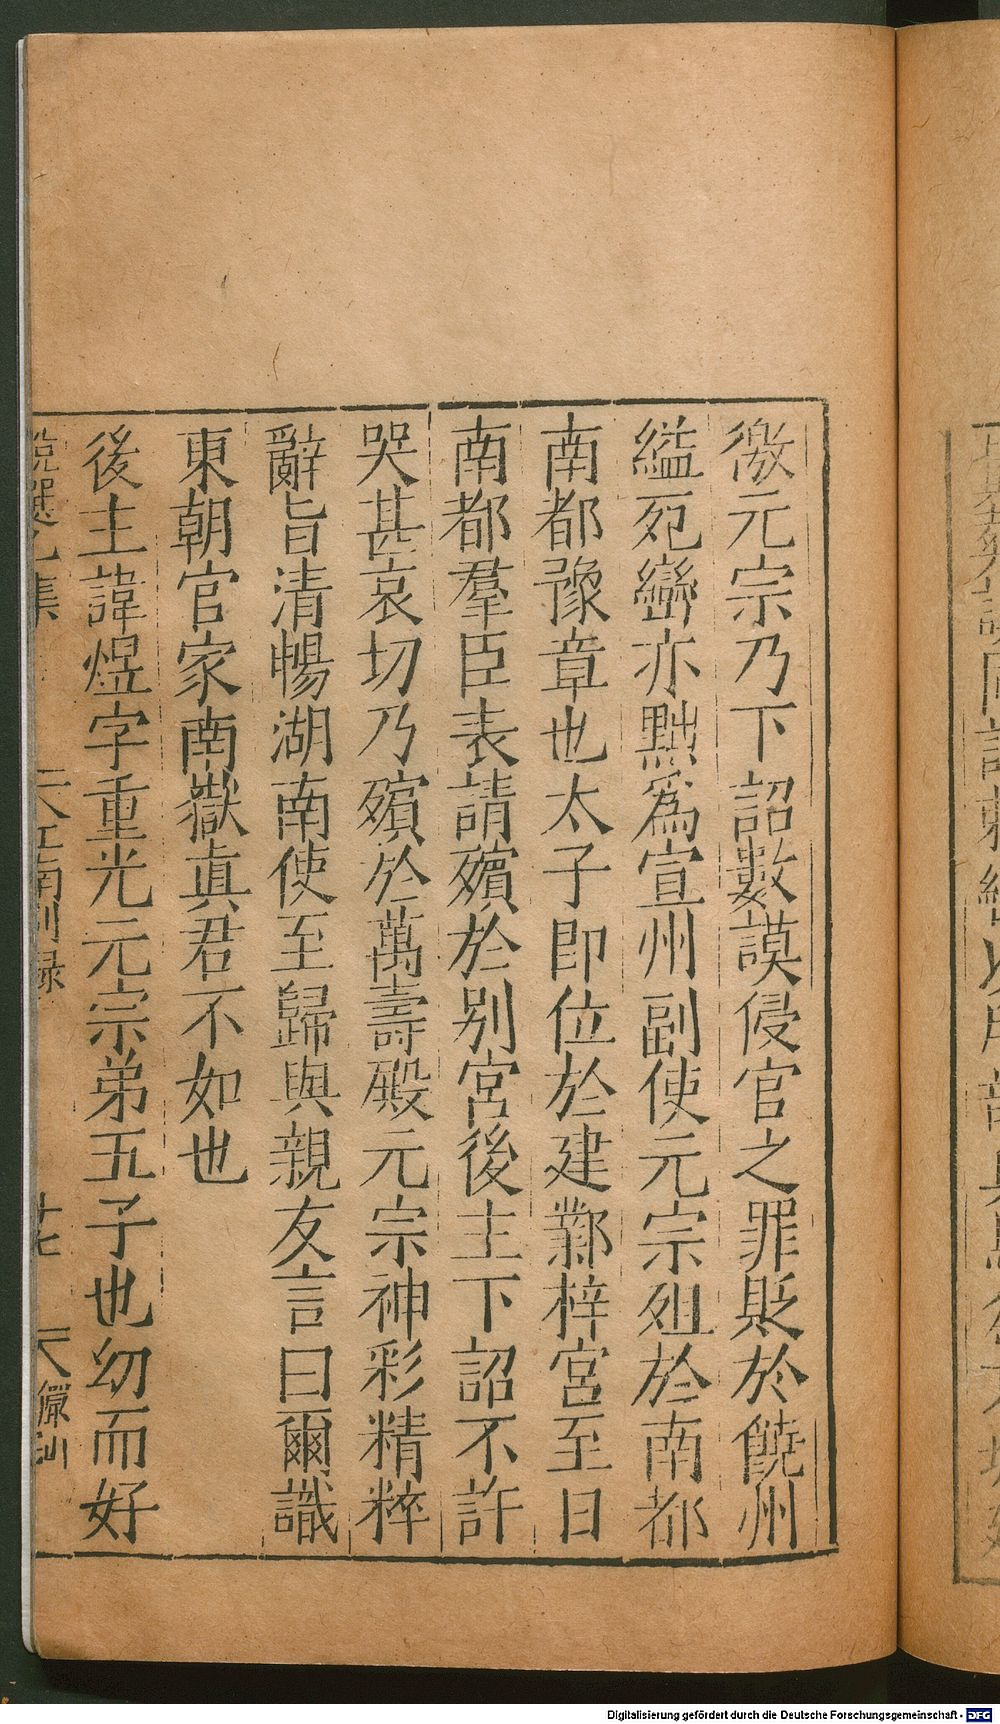 徼元宗乃下詔數謨侵官之罪貶於饒州
縊死巒亦黜爲宣州副使元宗殂於南都
南都豫章也太子卽位於建鄴梓宮至日
南都羣臣表請殯於別宮後主下詔不許
哭甚哀切乃殯於萬壽殿元宗神彩精粹
辭旨清暢湖南使至歸與親友言曰爾識
東朝官家南嶽眞君不如也
後主諱煜字重光元宗弟五子也幼而好
江南別録
Digitalisierung gefördert durch die Deutsche Forschungsgemeinschaft - DFG